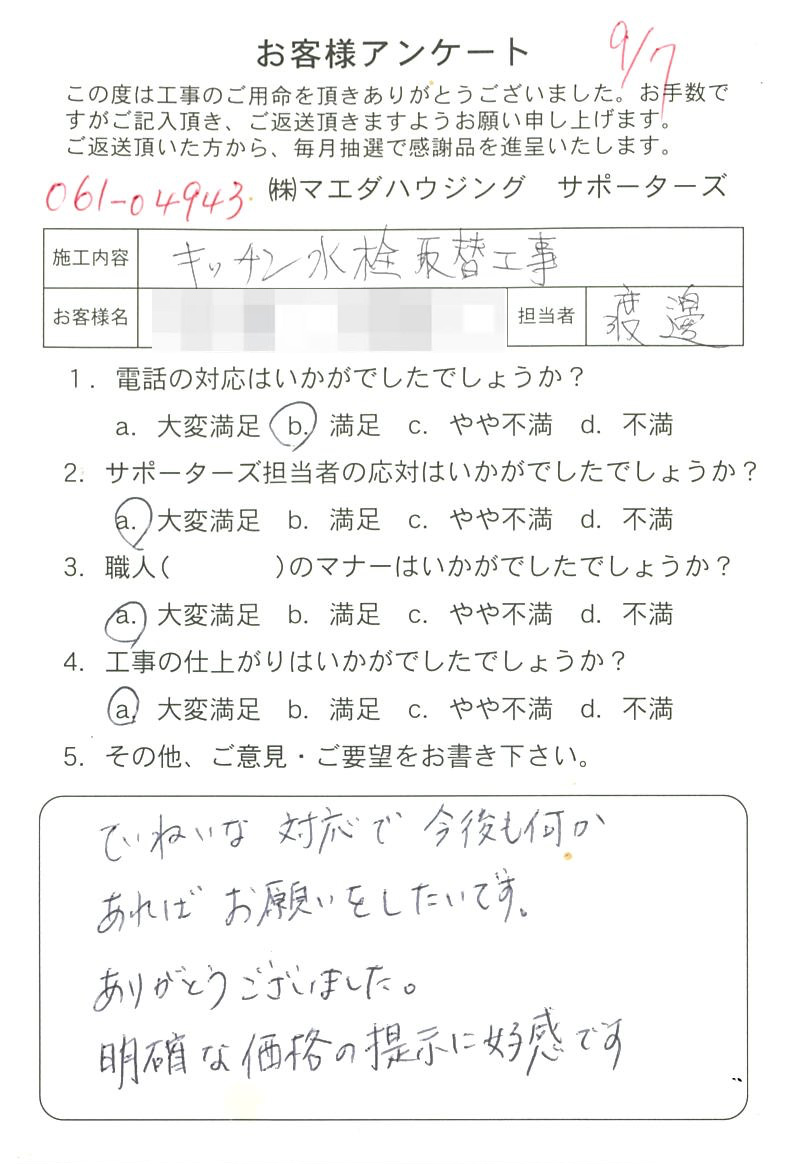 お客様アンケート
9/7
この度は工事のご用命を頂きありがとうございました。お手数で
すがご記入頂き、ご返送頂きますようお願い申し上げます。
ご返送頂いた方から、毎月抽選で感謝品を進呈いたします。
061-04943 ㈱マエダハウジング サポーターズ
施工内容 キッチン水栓取替工事
お客様名 担当者 渡邊
1. 電話の対応はいかがでしたでしょうか？
a. 大変満足 b. 満足 c. やや不満 d. 不満
2. サポーターズ担当者の応対はいかがでしたでしょうか？
a. 大変満足 b. 満足 c. やや不満 d. 不満
3. 職人( )のマナーはいかがでしたでしょうか？
a. 大変満足 b. 満足 c. やや不満 d. 不満
4. 工事の仕上がりはいかがでしたでしょうか？
a. 大変満足 b. 満足 c. やや不満 d. 不満
5. その他、ご意見・ご要望をお書き下さい。
ていねいな 対応で 今後も何か
あれば お願いをしたいです。
ありがとうございました。
明確な価格の提示に好感です